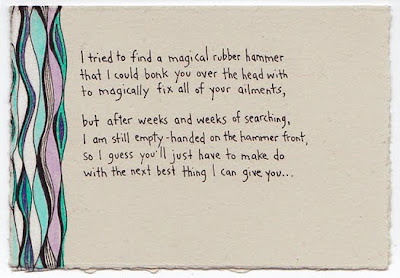 I tried to find a magical rubber hammer
that I could bonk you over the head with
to magically fix all of your ailments,
but after weeks and weeks of searching,
I am still empty-handed on the hammer front,
so I guess you'll just have to make do
with the next best thing I can give you...